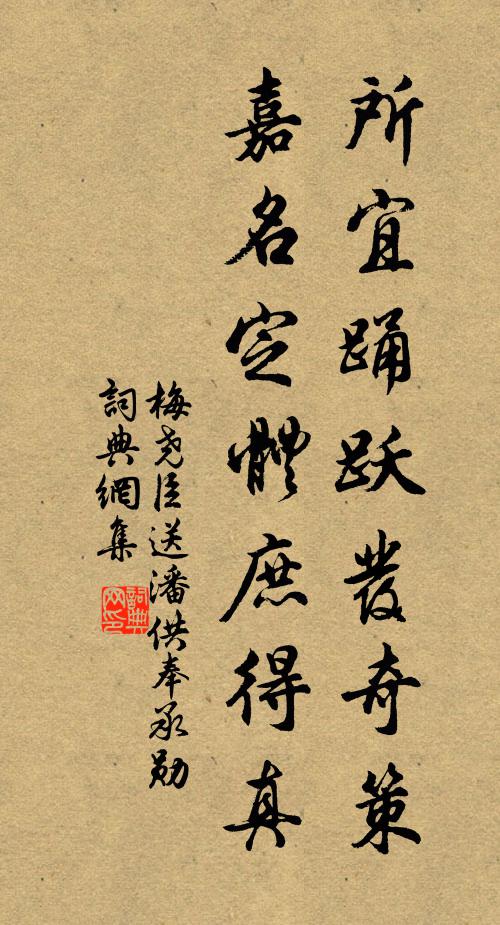 所宜踊跃發奇策
嘉名定體庶得真
梅尧臣送潘供奉承勛
詞典網集
詞典网印